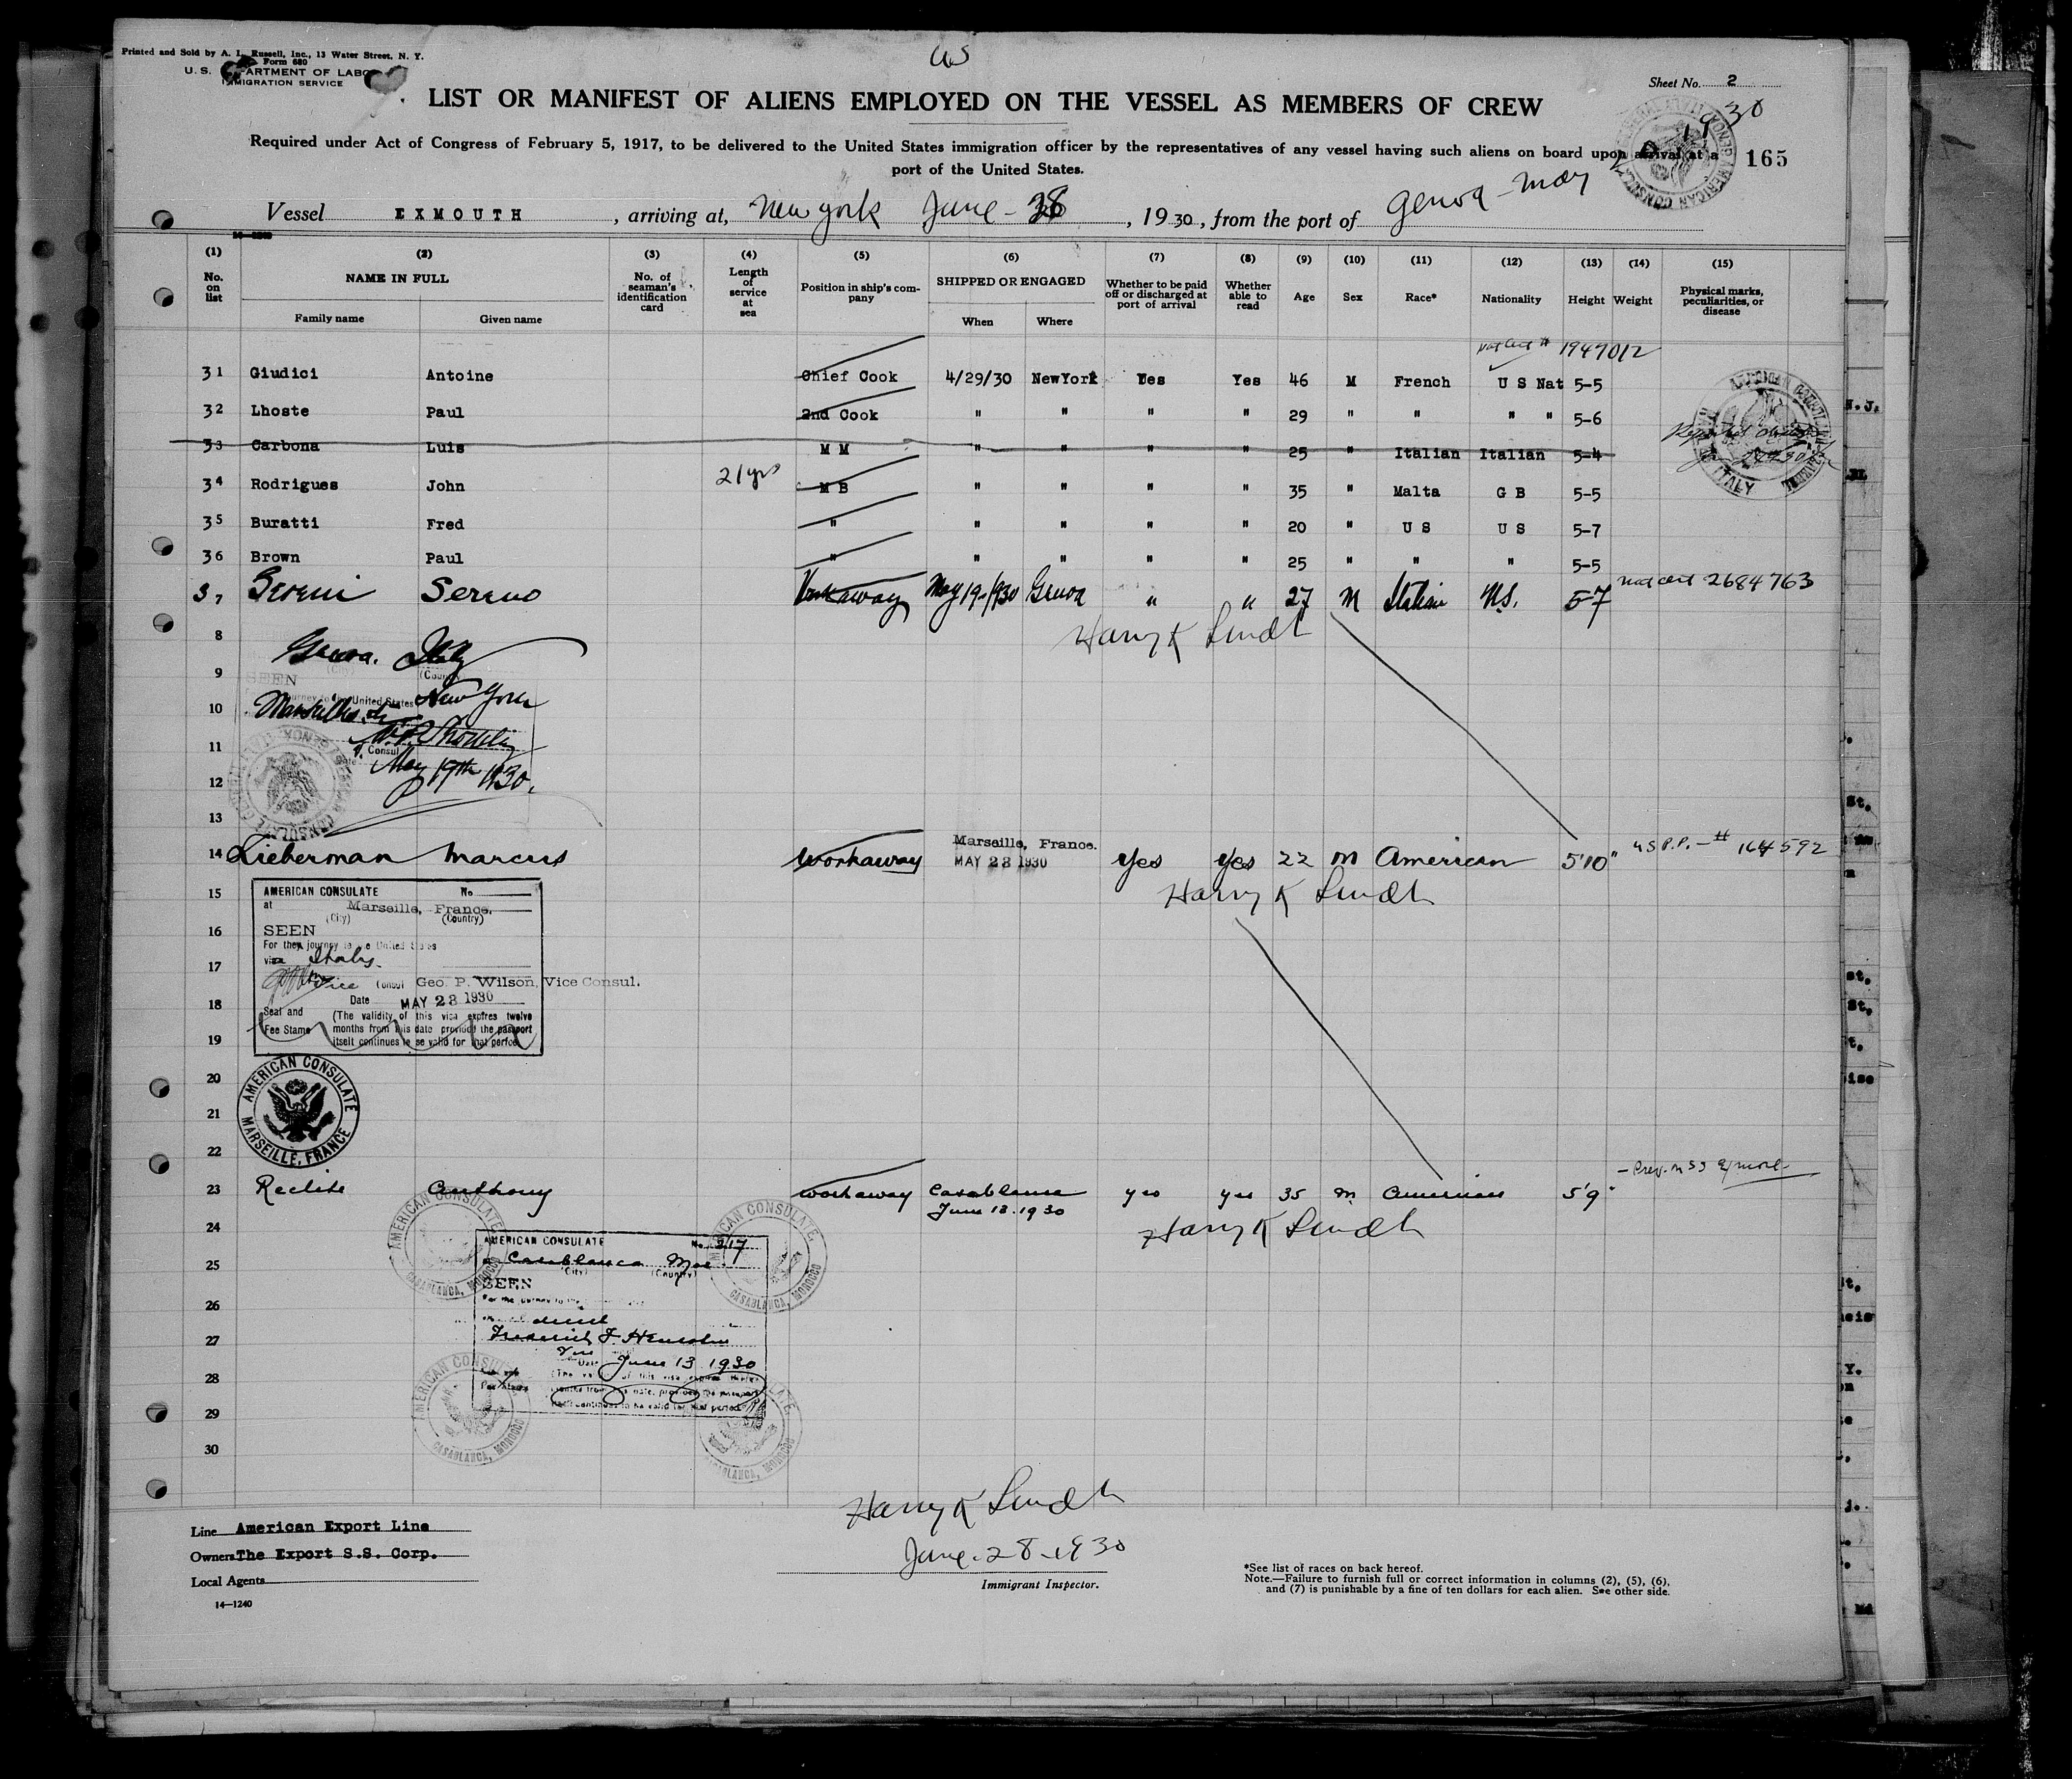 Printed and Sold by A. L. Russell, Inc., 13 Water Street, N. Y.
Form 680
U. S. DEPARTMENT OF LABOR
IMMIGRATION SERVICE
US
Sheet No. 2
LIST OR MANIFEST OF ALIENS EMPLOYED ON THE VESSEL AS MEMBERS OF CREW
Required under Act of Congress of February 5, 1917, to be delivered to the United States immigration officer by the representatives of any vessel having such aliens on board upon arrival at a
port of the United States.
165
Vessel EXMOUTH, arriving at, New York June - 28, 1930, from the port of Genoa - May 19 1930
(1) (2) (3) (4) (5) (6) (7) (8) (9) (10) (11) (12) (13) (14) (15)
No. on list
NAME IN FULL
Family name Given name
No. of seaman's identification card
Length of service at sea
Position in ship's company
SHIPPED OR ENGAGED
When Where
Whether to be paid off or discharged at port of arrival
Whether able to read
Age Sex Race* Nationality Height Weight
Physical marks, peculiarities, or disease
Nat Cert # 1947012
31 Giudici Antoine Chief Cook 4/29/30 NewYork Yes Yes 46 M French U S Nat 5-5
32 Lhoste Paul 2nd Cook " " " " 29 " " " " 5-6
33 Carbona Luis M M " " " " 25 " Italian Italian 5-4
34 Rodrigues John 21 yrs M B " " " " 35 " Malta G B 5-5
35 Buratti Fred " " " " " 20 " U S U S 5-7
36 Brown Paul " " " " " 25 " " " 5-5
37 Sereni Sereno Workaway May 19-1930 Genoa " " 27 M Italian U.S. 5-7 Nat cert 2684763
Harry K Lindt
8
Genoa. Italy
9
SEEN
(Country)
journey to the United States New York
10
Marseilles
11
Consul
May 19th 1930.
12
13
14 Lieberman Marcus Workaway Marseille, France. MAY 23 1930 Yes Yes 22 M American 5'10" U S P.P. - # 164592
Harry K Lindt
15
AMERICAN CONSULATE No
at Marseille, France.
(City) (Country)
16
SEEN
For the journey to the United States
17
via
Vice Consul Geo. P. Wilson, Vice Consul.
18
Date MAY 23 1930
Seal and Fee Stamp
(The validity of this visa expires twelve
months from this date provided the passport
19
itself continues to be valid for that period
20
AMERICAN CONSULATE
MARSEILLE, FRANCE.
21
22
23 Anthony Workaway Casablanca June 13. 1930 yes yes 35 M American 5'9"
Harry K Lindt
24
AMERICAN CONSULATE No. 217
25
Casablanca Mor
(City) (Country)
SEEN
26
direct
27
Frederick F.
Vice
Date June 13 1930
28
29
30
AMERICAN CONSULATE, CASABLANCA, MOROCCO
AMERICAN CONSULATE, CASABLANCA, MOROCCO
AMERICAN CONSULATE, CASABLANCA, MOROCCO
Harry K Lindt
June - 28 - 1930
Immigrant Inspector.
Line American Export Line
Owners The Export S.S. Corp.
Local Agents
14—1240
*See list of races on back hereof.
Note.—Failure to furnish full or correct information in columns (2), (5), (6),
and (7) is punishable by a fine of ten dollars for each alien. See other side.